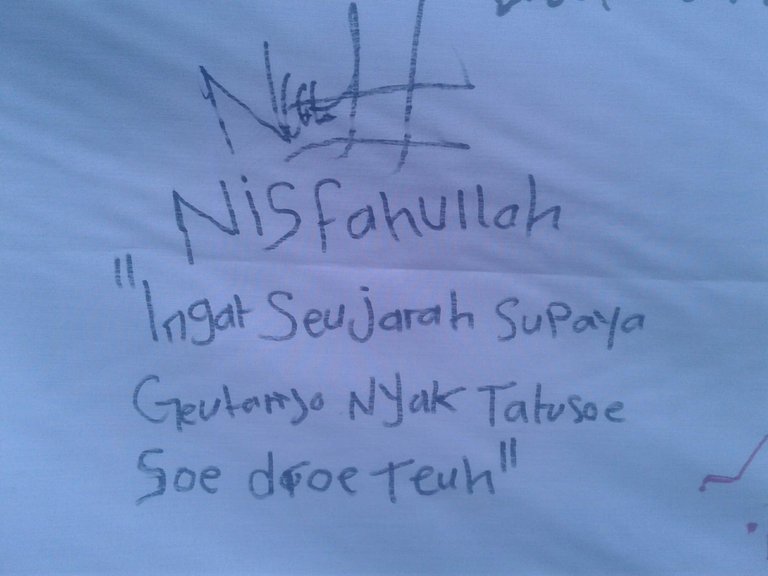 Nisfahullah
"Ingat Seujarah Supaya
Geutanyo Nyak Tatusoe
Soe droe Teuh"